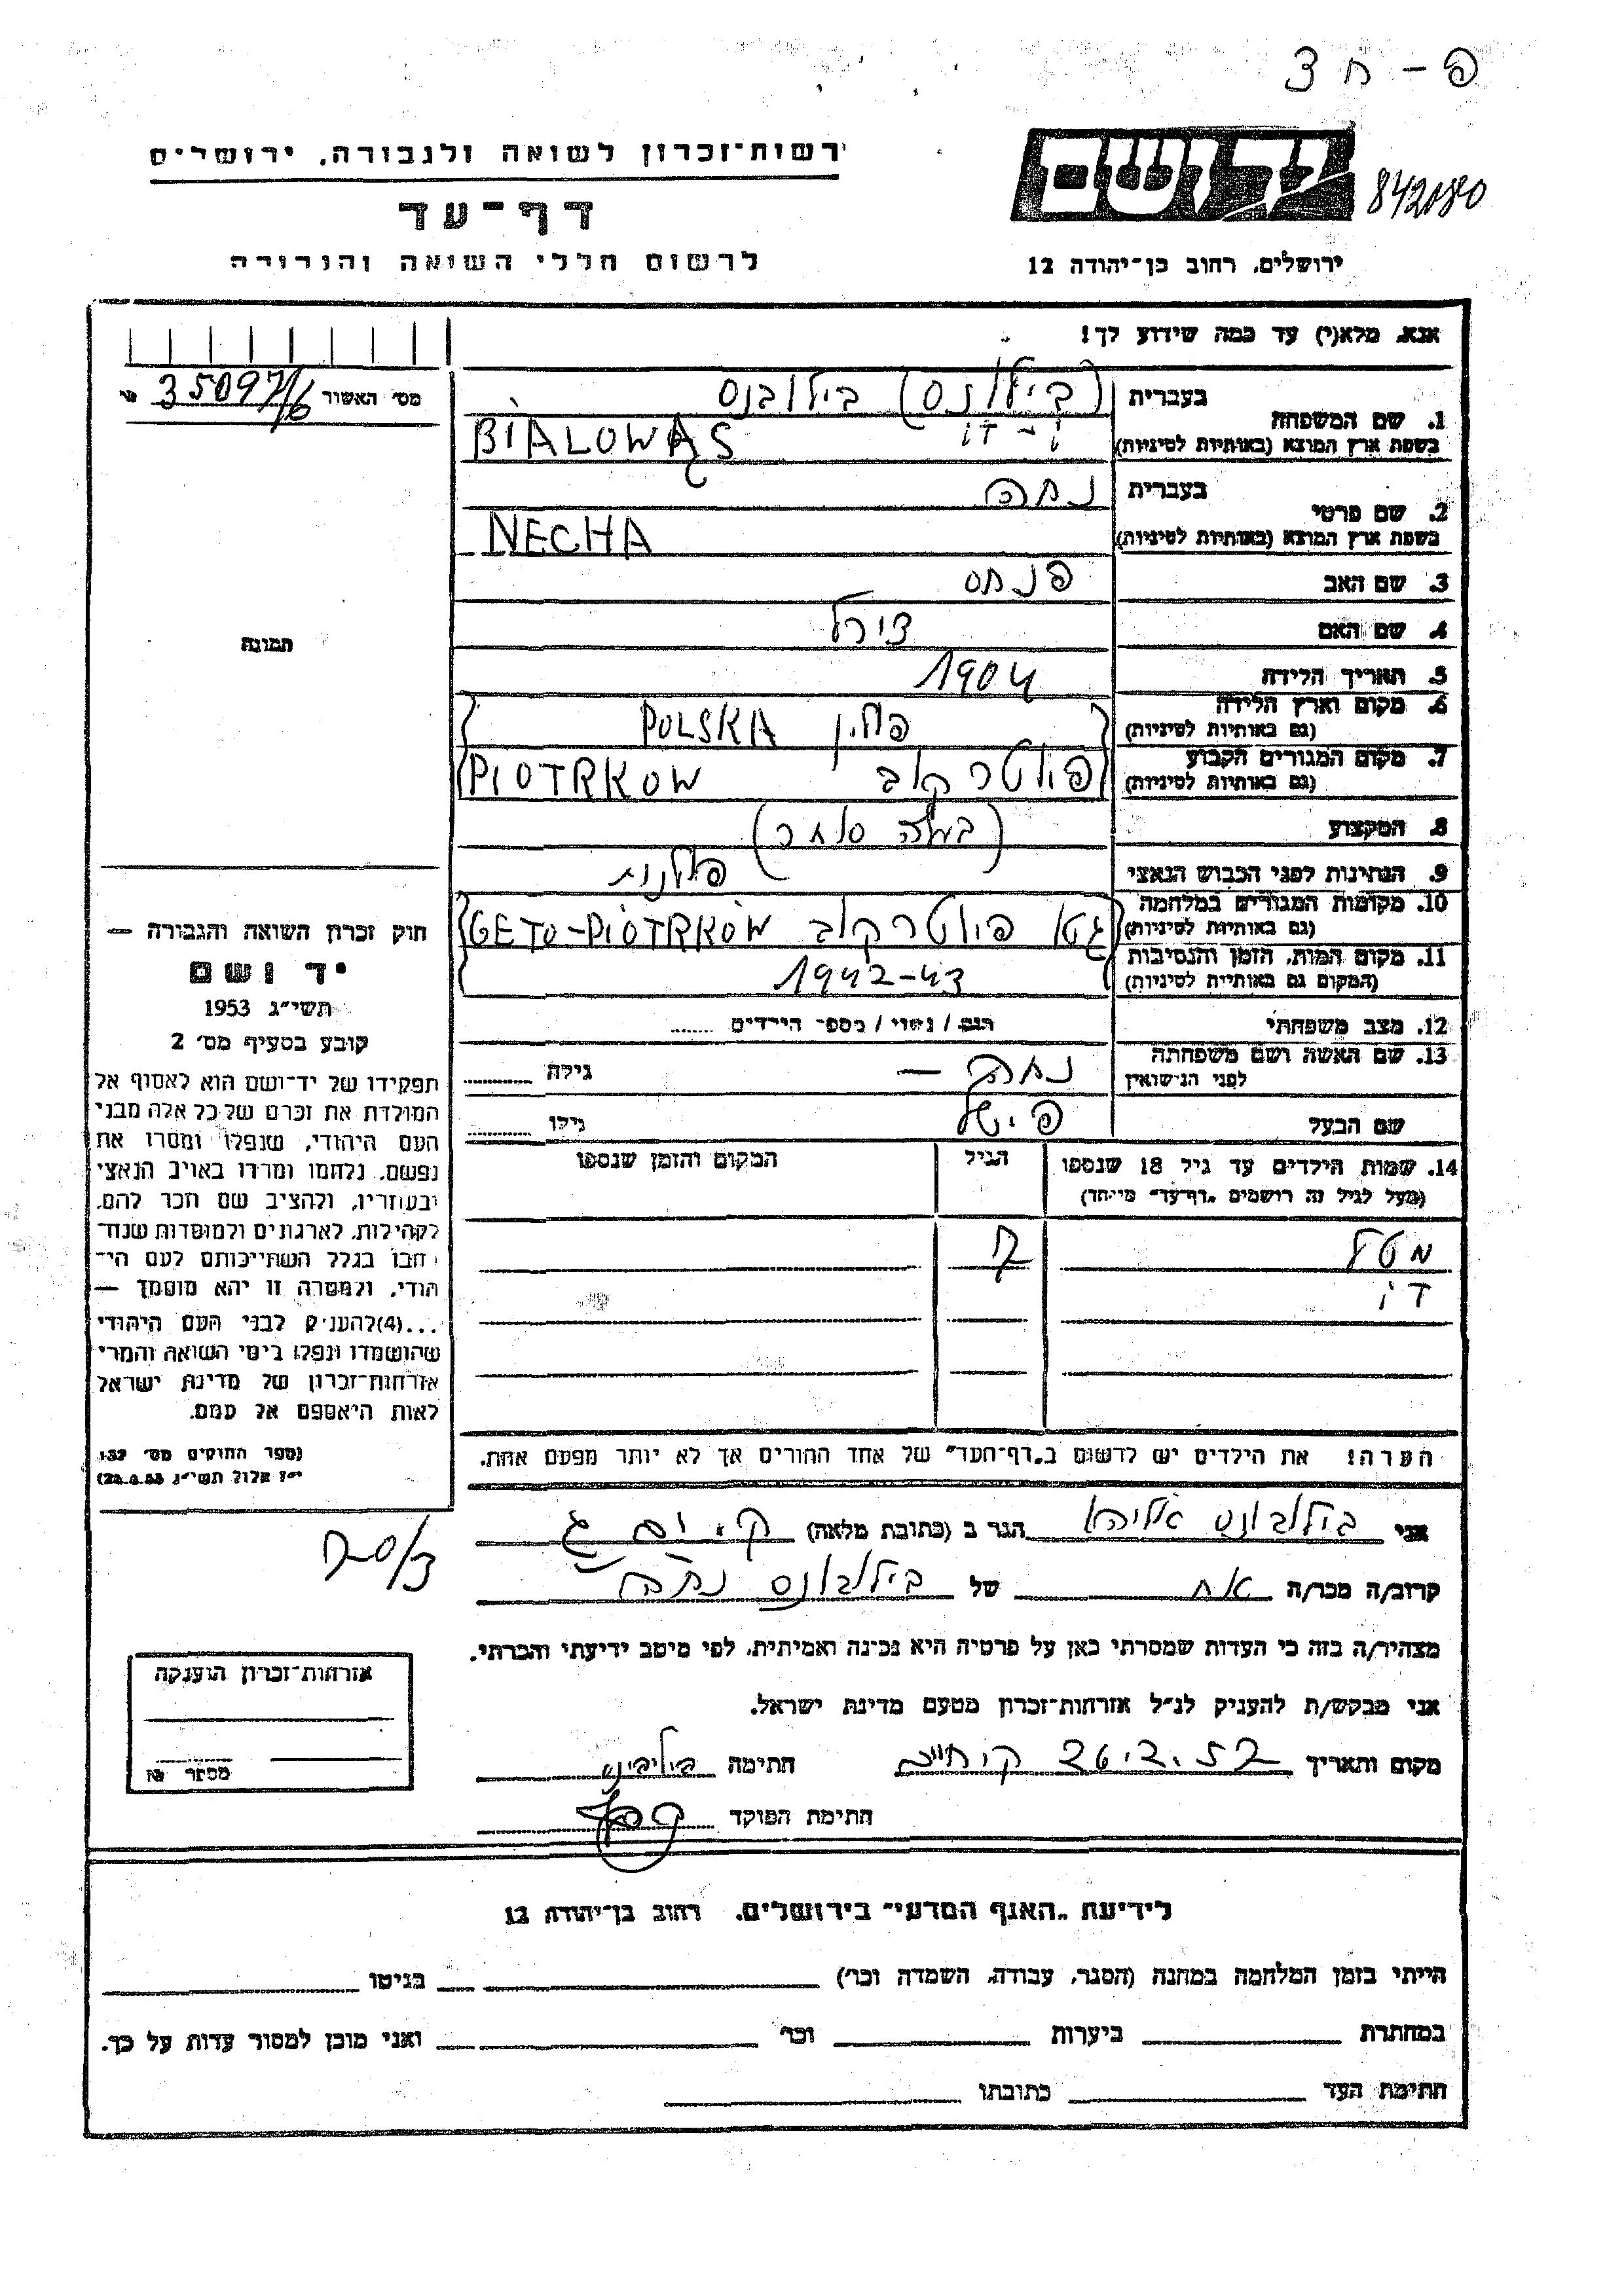 פ - ח 3
רשות־זכרון לשואה ולגבורה, ירושלים
דף־עד
לרשום חללי השואה והגבורה
יד ושם
842180
ירושלים, רחוב בן־יהודה 12
אנא, מלא(י) עד כמה שידוע לך!
מס׳ האשור 35097/6
1. שם המשפחה
בעברית (בילונס) בילובנס
בשפת ארץ המוצא (באותיות לטיניות) BIALOWĄS
2. שם פרטי
בעברית נחה
בשפת ארץ המוצא (באותיות לטיניות) NECHA
3. שם האב פנחס
4. שם האם צירל
5. תאריך הלידה 1904
6. מקום וארץ הלידה (גם באותיות לטיניות) פולין POLSKA
7. מקום המגורים הקבוע (גם באותיות לטיניות) פיוטרקוב PIOTRKOW
8. המקצוע (בעלה סוחר)
9. הנתינות לפני הכבוש הנאצי פולנית
10. מקומות המגורים במלחמה (גם באותיות לטיניות) גטו פיוטרקוב GETO-PIOTRKÓW
11. מקום המות, הזמן והנסיבות (המקום גם באותיות לטיניות) 1942-43
12. מצב משפחתי רוק / נשוי / מספר הילדים
13. שם האשה ושם משפחתה לפני הנישואין נחה — גילה
שם הבעל פישל גילו
14. שמות הילדים עד גיל 18 שנספו
(מעל לגיל זה רושמים „דף־עד״ מיוחד)
הגיל
המקום והזמן שנספו
מטל
הערה! את הילדים יש לרשום ב„דף־העד״ של אחד ההורים אך לא יותר מפעם אחת.
תמונה
חוק זכרון השואה והגבורה —
יד ושם
תשי״ג 1953
קובע בסעיף מס׳ 2
תפקידו של יד־ושם הוא לאסוף אל
המולדת את זכרם של כל אלה מבני
העם היהודי, שנפלו ומסרו את
נפשם, נלחמו ומרדו באויב הנאצי
ובעוזריו, ולהציב שם וזכר להם,
לקהילות, לארגונים ולמוסדות שנח־
רבו בגלל השתייכותם לעם הי־
הודי, ולמטרה זו יהא מוסמך —
...(4)להעניק לבני העם היהודי
שהושמדו ונפלו בימי השואה והמרי
אזרחות־זכרון של מדינת ישראל
לאות היאספם אל עמם.
(ספר החוקים מס׳ 132
י״ז אלול תשי״ג 28.8.53)
אני בילבונס אליהו הגר ב (כתובת מלאה)
קרוב/ה מכר/ה אח של בילבונס נחה
מצהיר/ה בזה כי העדות שמסרתי כאן על פרטיה היא נכונה ואמיתית, לפי מיטב ידיעתי והכרתי.
אני מבקש/ת להעניק לנ״ל אזרחות־זכרון מטעם מדינת ישראל.
מקום ותאריך
חתימה
חתימת הפוקד
אזרחות־זכרון הוענקה
מספר
לידיעת „האגף המדעי״ בירושלים, רחוב בן־יהודה 12
הייתי בזמן המלחמה במחנה (הסגר, עבודה, השמדה וכר׳) בגיטו
במחתרת ביערות וכר׳ ואני מוכן למסור עדות על כך.
חתימת העד כתובתו